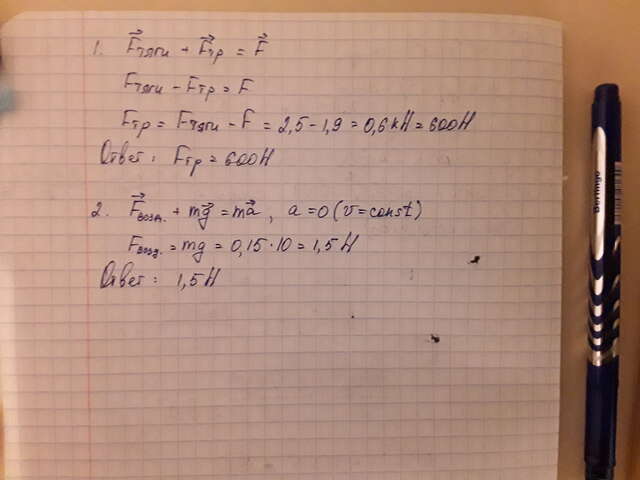 1. F⃗тяги + F⃗тр = F⃗
Fтяги - Fтр = F
Fтр = Fтяги - F = 2,5 - 1,9 = 0,6 кН = 600 Н
Ответ: Fтр = 600 Н
2. F⃗возд. + mg⃗ = ma⃗, a = 0 (v = const)
Fвозд. = mg = 0,15 · 10 = 1,5 Н
Ответ: 1,5 Н
Berlingo